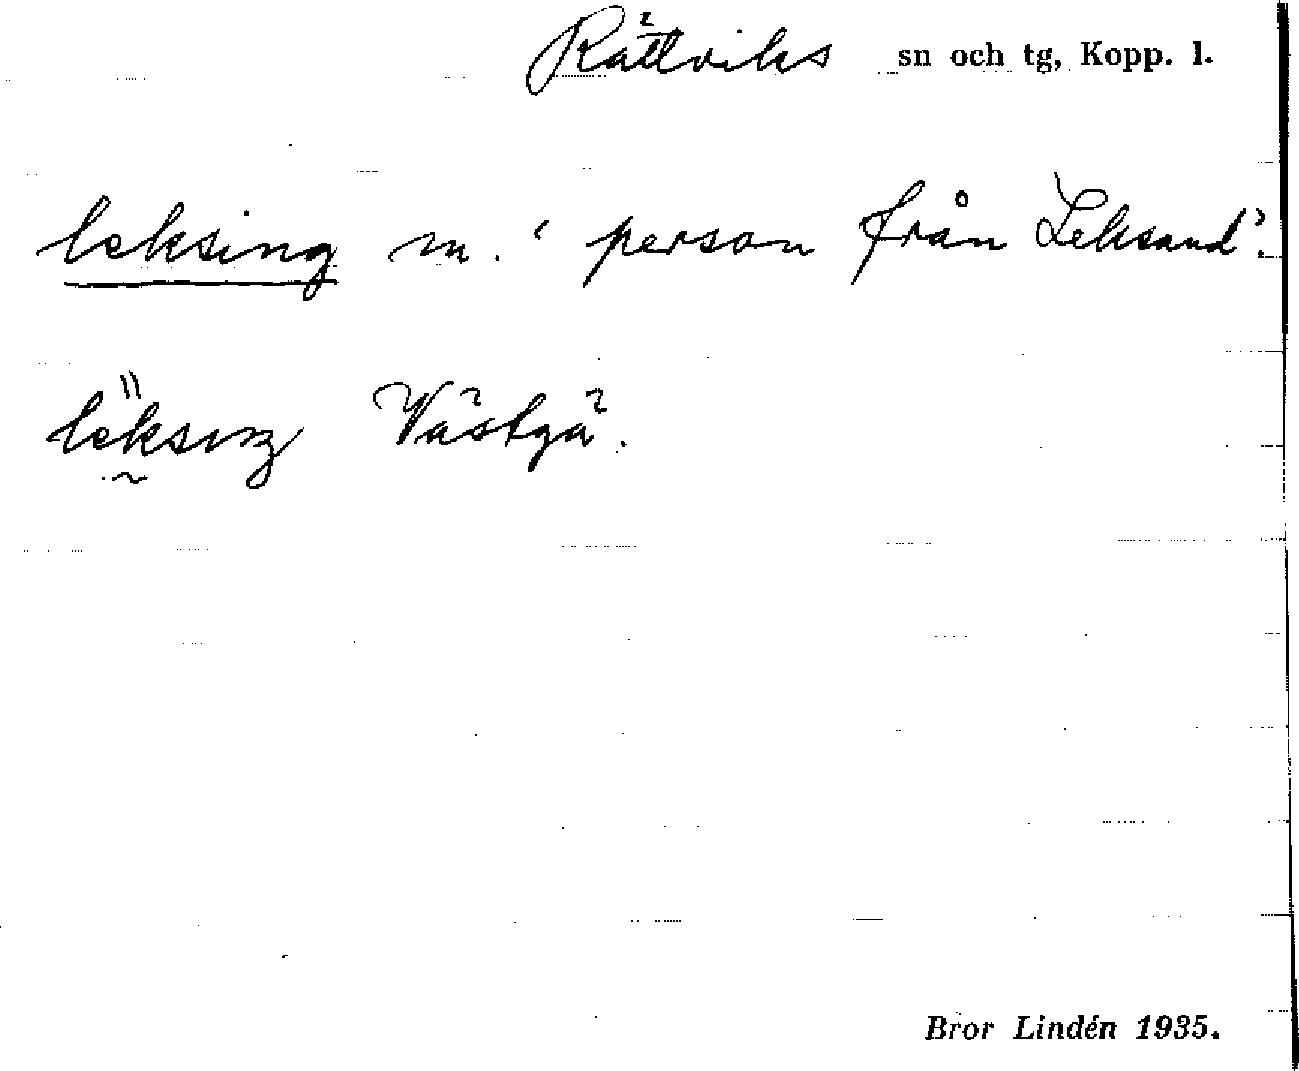 Rättviks sn och tg, Kopp. l.
leksing m. ‘person från Leksand’.
Västgä.
Bror Lindén 1935.